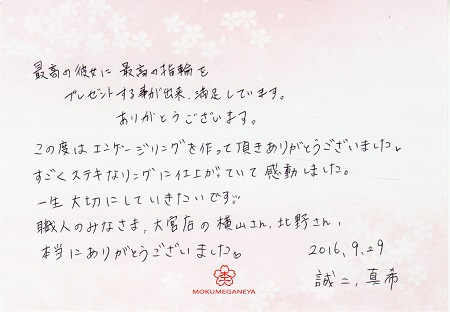 最高の彼女に 最高の指輪を
プレゼントする事が出来、満足しています。
ありがとうございます。
この度はエンゲージリングを作って頂きありがとうございました
すごくステキなリングに仕上がっていて感動しました。
一生大切にしていきたいです
職人のみなさま、大宮店の横山さん、北野さん、
本当にありがとうございました
2016.9.29
誠二、真希
MOKUMEGANEYA